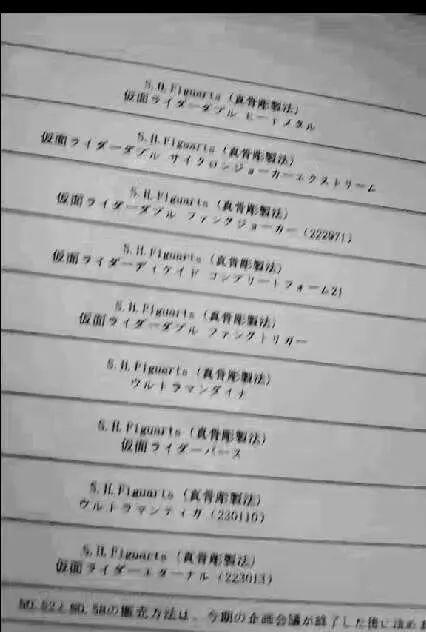 S.H.Figuarts (真骨彫製法)
仮面ライダーダブル ヒートメタル
S.H.Figuarts (真骨彫製法)
仮面ライダーダブル サイクロンジョーカーエクストリーム
S.H.Figuarts (真骨彫製法)
仮面ライダーダブル ファングジョーカー (222971)
S.H.Figuarts (真骨彫製法)
仮面ライダーディケイド コンプリートフォーム21
S.H.Figuarts (真骨彫製法)
仮面ライダーダブル ファングトリガー
S.H.Figuarts (真骨彫製法)
ウルトラマンダイナ
S.H.Figuarts (真骨彫製法)
仮面ライダーバース
S.H.Figuarts (真骨彫製法)
ウルトラマンティガ (230110)
S.H.Figuarts (真骨彫製法)
仮面ライダーエターナル (223013)
NO.52とNO.58の販売方法は、今期の企画会議が終了した後に決め